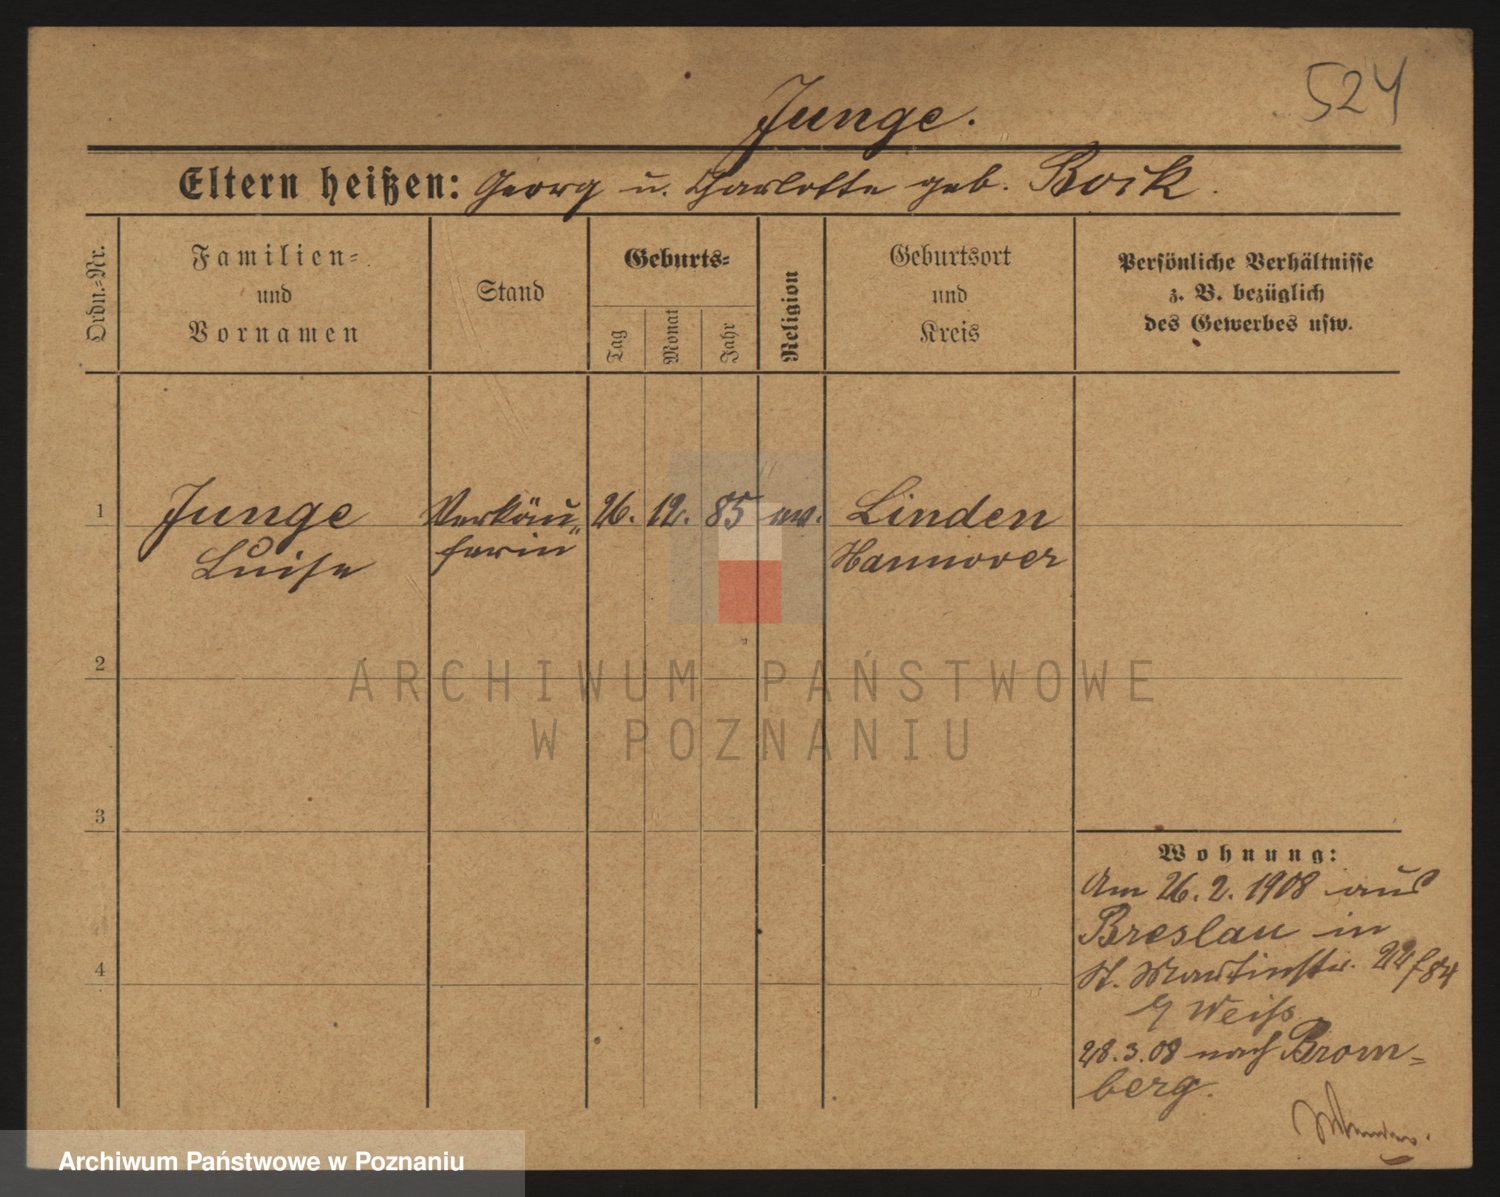 524
Junge.
Eltern heißen: Georg u. Charlotte geb. Bock.
Ordn.-Nr.
Familien-
und
Vornamen
Stand
Geburts-
Tag
Monat
Jahr
Religion
Geburtsort
und
Kreis
Persönliche Verhältnisse
z. B. bezüglich
des Gewerbes usw.
1
Junge
Luise
Verkäu-
ferin
26. 12. 85 ev.
Linden
Hannover
2
ARCHIWUM PAŃSTWOWE
W POZNANIU
3
4
Wohnung:
Am 26.2.1908 aus
Breslau in
St. Martinstr. 22/84
Weiß
28.3.08 nach Brom=
berg.
Archiwum Państwowe w Poznaniu